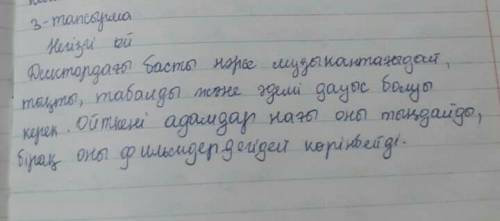 3-тапсырма
Негізгі ой
Диктордағы басты нәрсе музыканттағыдай,
тықты, табанды және әдемі дауыс болуы
керек. Өйткені адамдар нағы оны тыңдайды,
бірақ оны фильмдердегідей көрінбейді.